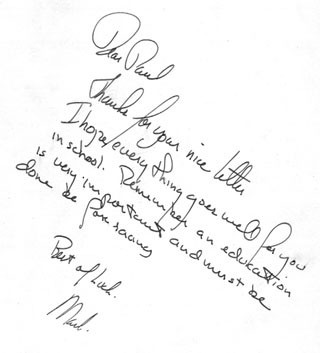 Dear Paul
Thanks for your nice letter
I hope everything goes well for you
in school. Remember an edukation
is very important and must be
done be for racing
Best of Luck.
Mark.